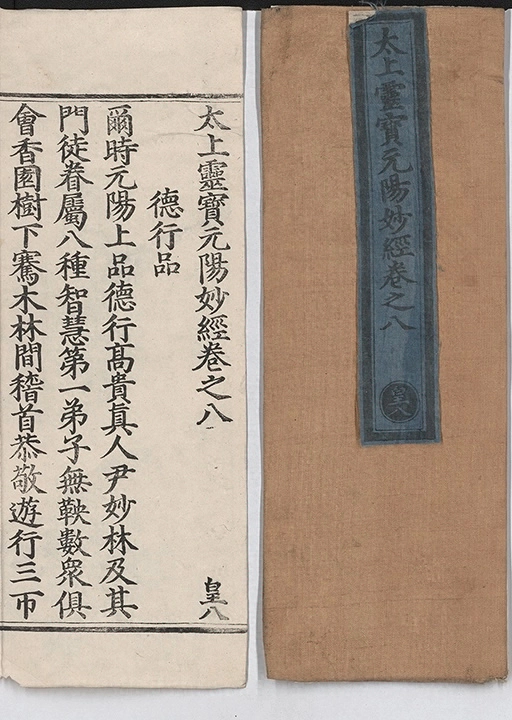 太上靈寶元陽妙經卷之八
皇八
太上靈寶元陽妙經卷之八
皇八
德行品
爾時元陽上品德行高貴真人尹妙林及其
門徒眷屬八種智慧第一弟子無鞅數眾俱
會香園樹下騫木林間稽首恭敬遊行三帀